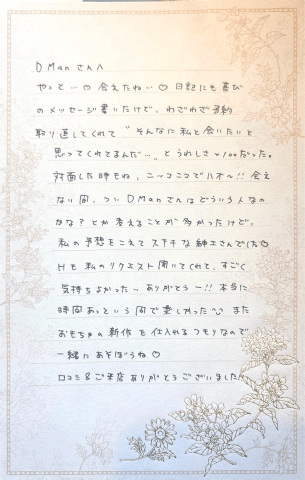 DManさんへ
やっと…♡会えたね…♡日記にも喜び
のメッセージ書いたけど、わざわざ予約
取り直してくれて"そんなに私と会いたいと
思ってくれてるんだ…"とうれしさ×100だった。
対面した時もね、ニッコニコでハオ〜!!会え
ない間、つい DManさんはどういう人なの
かな?とか考えることが多かったけど、
私の予想をこえてステキな紳士さんでした♡
Hも私のリクエスト聞いてくれて、すごく
気持ちよかった…ありがとうー!!本当に
時間あっという間で楽しかった^^また
おもちゃの新作を仕入れるつもりなので
一緒にあそぼうね♡
口コミ&ご来店ありがとうございました